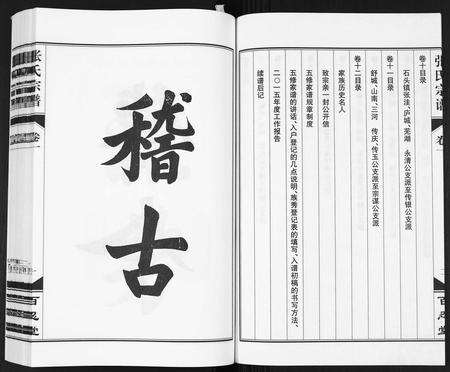 张氏宗谱
卷一
百忍堂
卷十目录
石头镇张洼、庐城、芜湖 永清公支派至传银公支派
卷十一目录
舒城、山南、三河 传庆、传玉公支派至宗谋公支派
卷十二目录
家族历史名人
致宗亲一封公开信
五修家谱规章制度
五修家谱的讲话、入户登记的几点说明、族秀登记表的填写、入谱初稿的书写方法、
二〇一五年度工作报告
续谱后记
稽古
张氏宗谱
卷一
百忍堂